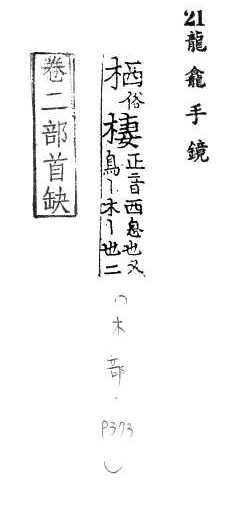 21 龍龕手鏡
栖俗棲正音西息也又
鳥〻木〻也二
(木部.P373)
卷二部首缺